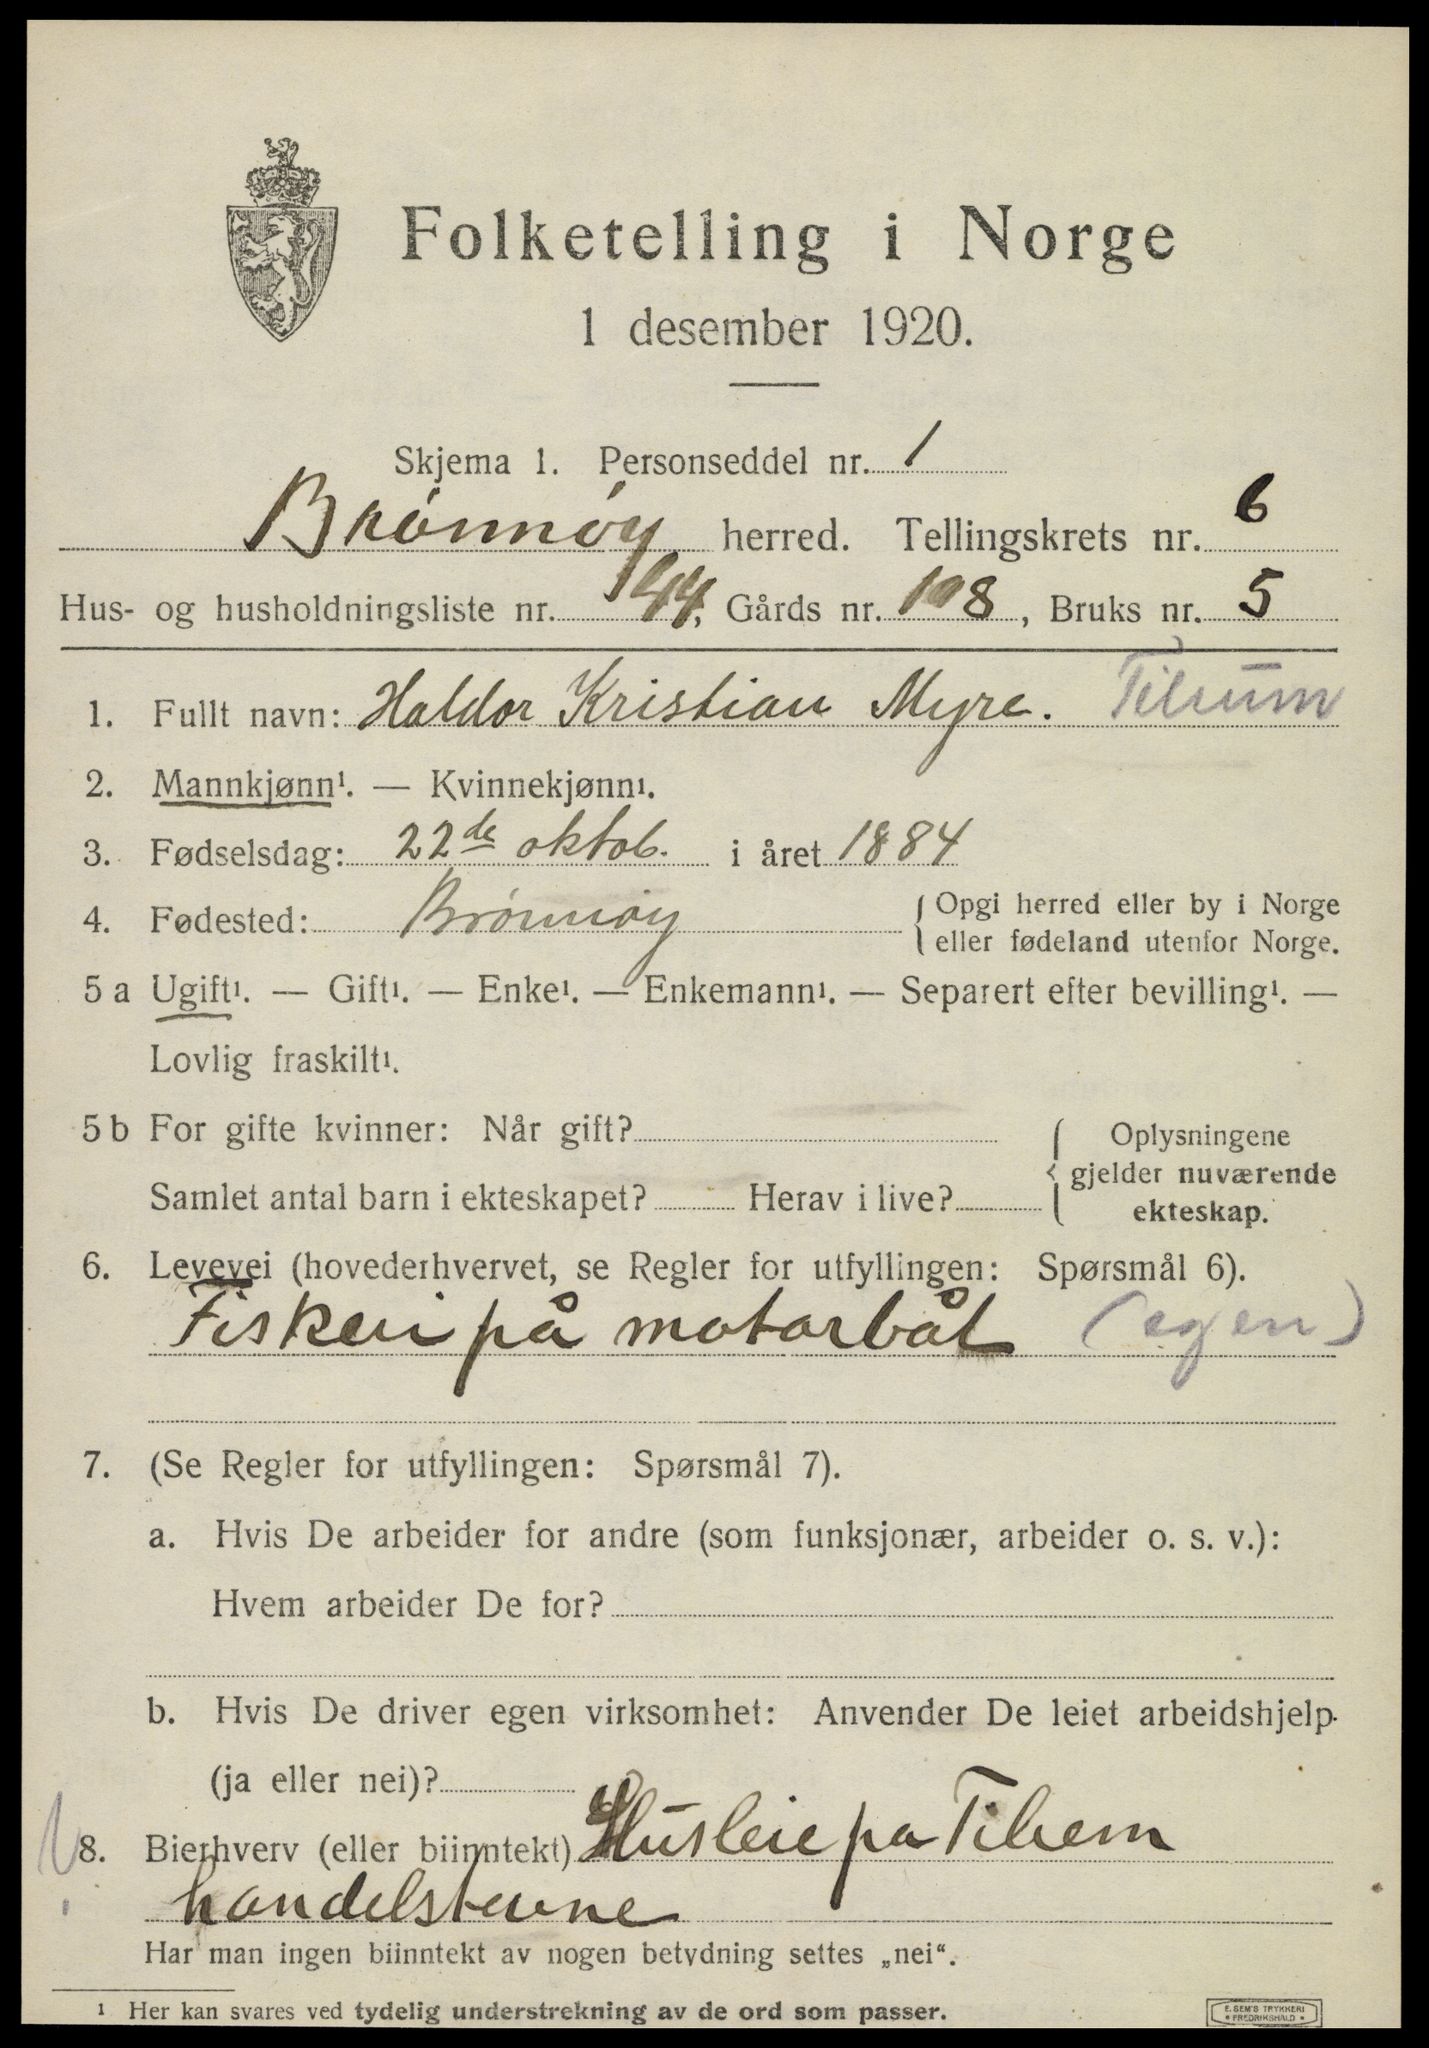 Folketelling i Norge
1 desember 1920.
Skjema 1. Personseddel nr. 1
Brønnøy herred. Tellingskrets nr. 6
Hus- og husholdningsliste nr. 44, Gårds nr. 108, Bruks nr. 5
1. Fullt navn: Haldor Kristian Myre.
2. Mannkjønn¹. — Kvinnekjønn¹.
3. Fødselsdag: 22de oktob. i året 1884
4. Fødested: Brønnøy { Opgi herred eller by i Norge
eller fødeland utenfor Norge.
5 a Ugift¹. — Gift¹. — Enke¹. — Enkemann¹. — Separert efter bevilling¹. —
Lovlig fraskilt¹.
5 b For gifte kvinner: Når gift?
Samlet antal barn i ekteskapet? Herav i live?
{ Oplysningene
gjelder nuværende
ekteskap.
6. Levevei (hovederhvervet, se Regler for utfyllingen: Spørsmål 6).
Fiskeri på motorbåt (egen)
7. (Se Regler for utfyllingen: Spørsmål 7).
a. Hvis De arbeider for andre (som funksjonær, arbeider o. s. v.):
Hvem arbeider De for?
b. Hvis De driver egen virksomhet: Anvender De leiet arbeidshjelp
(ja eller nei)?
8. Bierhverv (eller biinntekt) Husleie på Tilrem
handelstevne
Har man ingen biinntekt av nogen betydning settes „nei“.
¹ Her kan svares ved tydelig understrekning av de ord som passer.
E. SEM'S TRYKKERI
• FREDRIKSHALD •